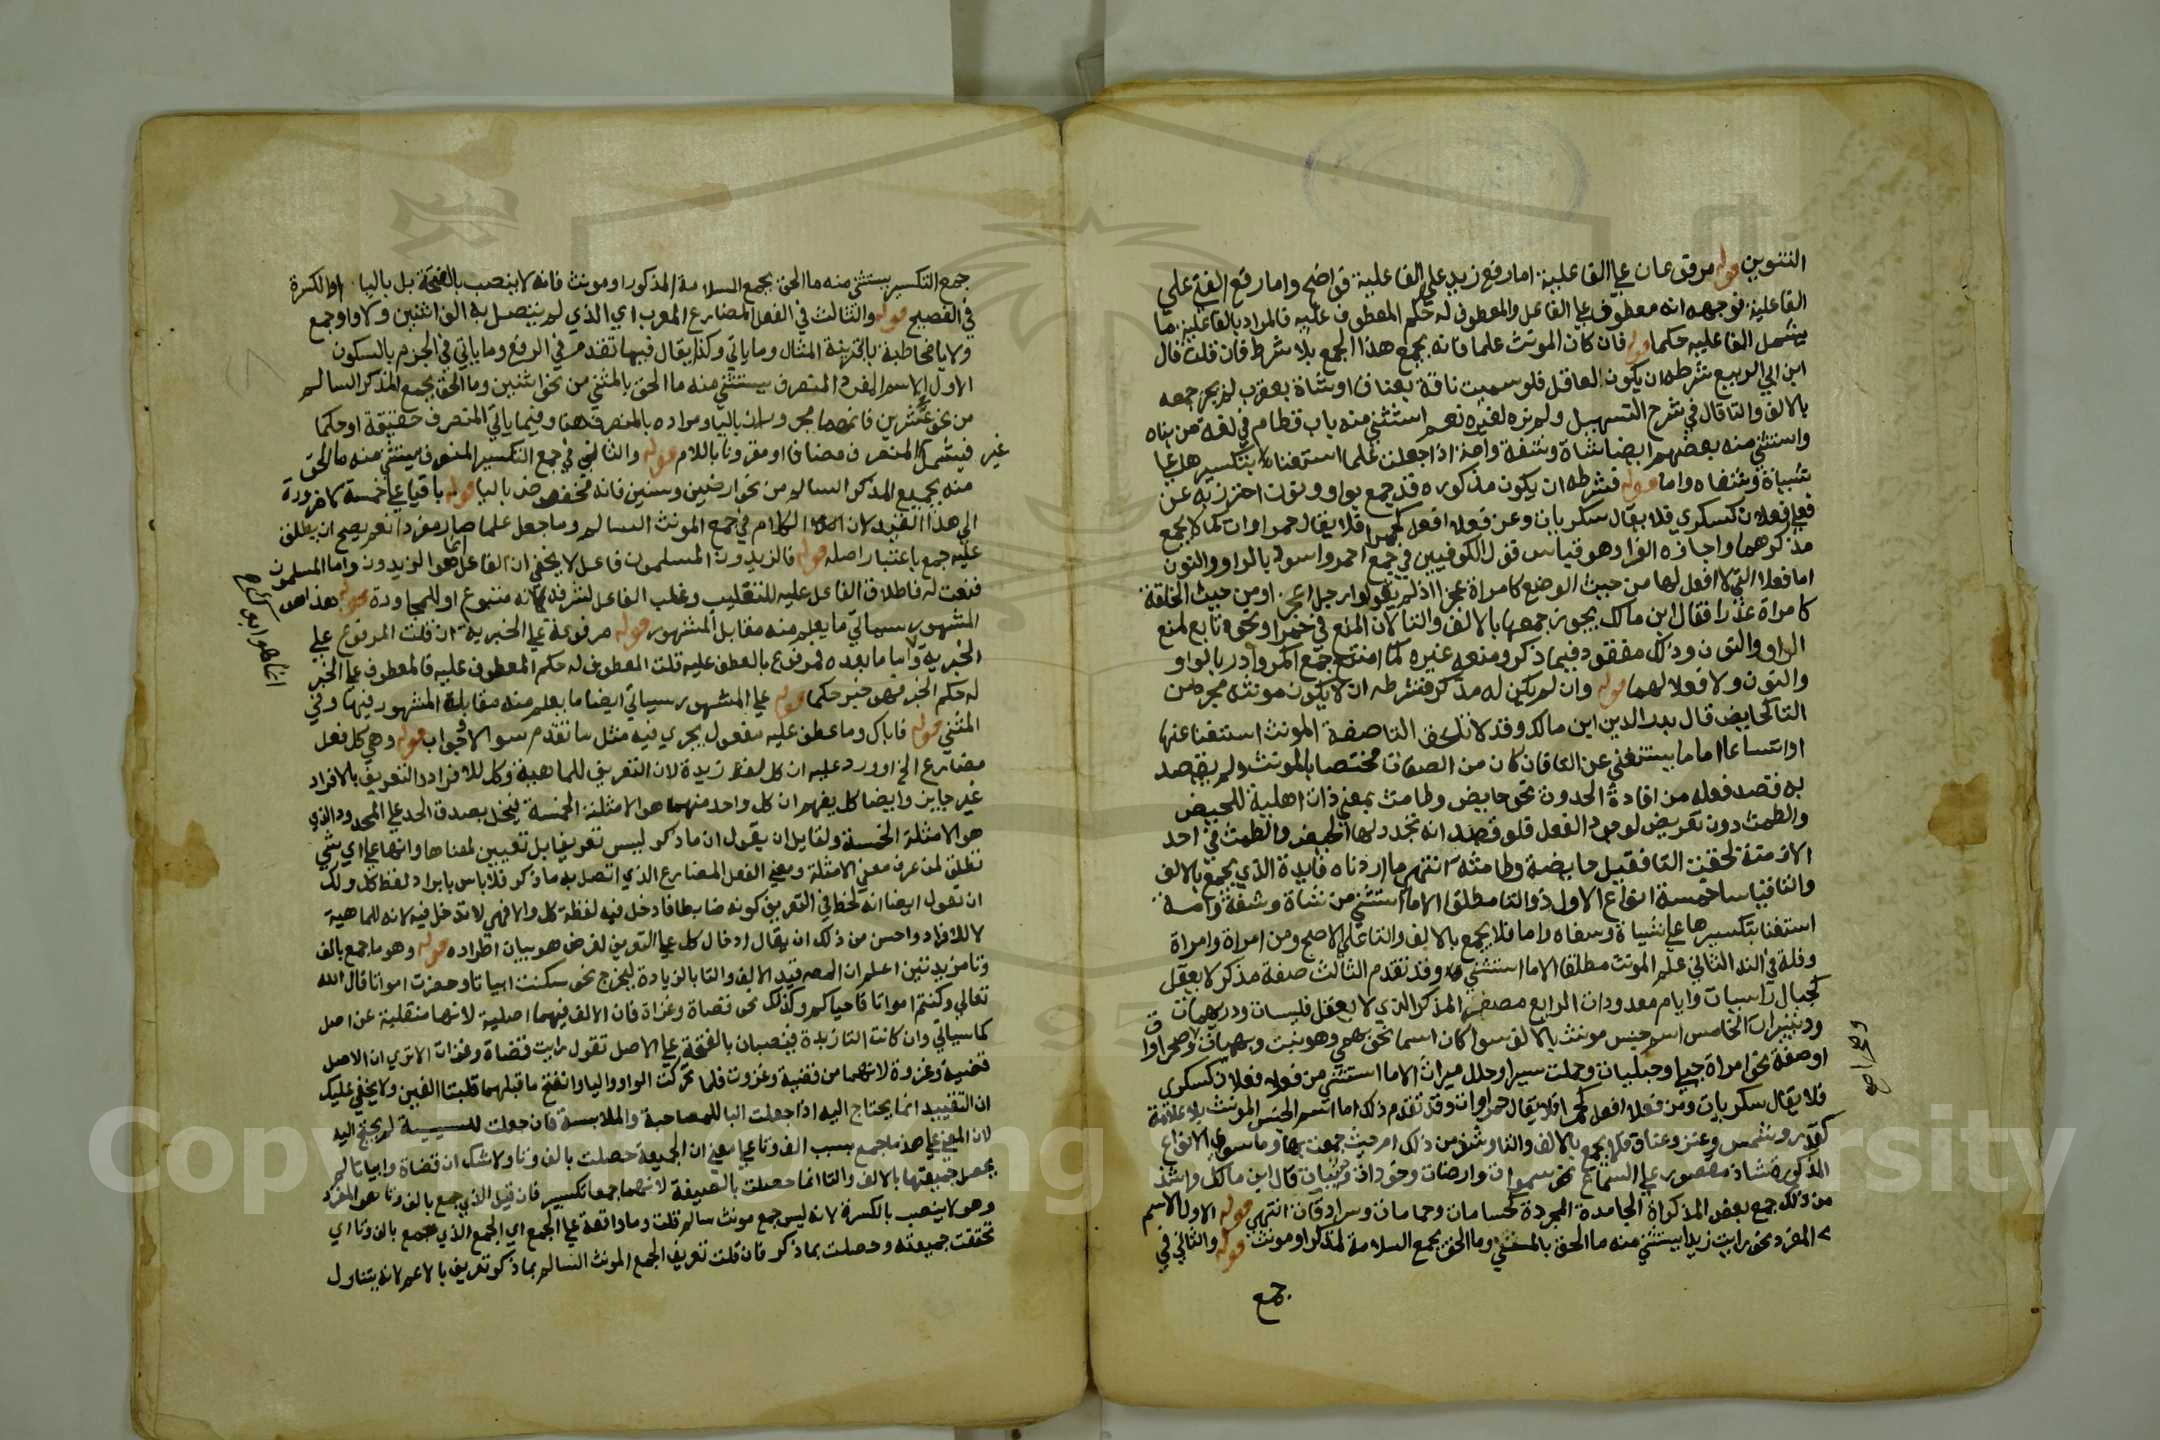 التنوين قوله مرفوعان على الفاعلية اما رفع زيد على الفاعلية فواضح واما رفع الفتى على
الفاعلية فوجهه انه معطوف على الفاعل والمعطوف له حكم المعطوف عليه فالمراد بالفاعلية ما
يشمل الفاعلية حكما قوله فان كان المونث علما فانه يجمع هذا الجمع بلا شرط فان قلت قال
ابن ابي الربيع شرطه ان يكون لعاقل فلو سميت ناقة بعناق او شاة بعقرب لم يجز جمعه
بالالف والتا قال في شرح التسهيل ولم نره لغيره نعم استثنى منه باب قطام في لغة من بناه
واستثنى منه بعضهم ايضا شاة وشفة وامة اذا جعلن علما استغناء بتكسيرها على
شياه وشفاه واما قوله فشرطه ان يكون مذكوره قد جمع بواو ونون احترز به عن
فعلى فعلان كسكرى فلا يقال سكريات وعن فعلا افعل كحمرا فلا يقال حمراوات كما لا يجمع
مذكرهما واجازه الفرا وهو قياس قول الكوفيين في جمع احمر واسود بالواو والنون
اما فعلا التي لا افعل لها من حيث الوضع كامراة عجزا اذ لم يقولوا رجل اعجز او من حيث الخلقة
كامراة عذرا فقال ابن مالك يجوز جمعها بالالف والتا لان المنع في حمرا ونحوه تابع لمنع
الواو والنون وذلك مفقود فيما ذكر ومنعه غيره كما امتنع جمع اكمر وادر بالواو
والنون ولا فعلا لهما قوله وان لم يكن له مذكر فشرطه ان لا يكون مونثه مجردا من
التا كحايض قال بدر الدين ابن مالك وقد لا تلحق التا صفة المونث استغنا عنها
او اتساعا اما ما يستغنى عن التا فان كان من الصفات مختصا بالمونث ولم يقصد
به قصد فعله من افادة الحدوث نحو حايض وطامث بمعنى ذات اهلية للحيض
والطمث دون تعرض لوجود الفعل فلو قصد انه تجدد لها الحيض والطمث في احد
الازمنة لحقت التا فقيل حايضة وطامثة انتهى ما اردناه فايدة الذي يجمع بالالف
والتا قياسا خمسة انواع الاول ذو التا مطلقا الا ما استثنى من شاة وشفة وامة
استغنا بتكسيرها على شياه وشفاه واما فلا يجمع بالالف والتا على الاصح ومن امراة وامراة
وقلة في الندا الثاني علم المونث مطلقا الا ما استثني وقد تقدم الثالث صفة مذكر لا يعقل
كجبال راسيات وايام معدودات الرابع مصغر المذكر الذي لا يعقل فليسات ودريهمات
ودنينيرات الخامس اسم جنس مونث بالالف سوا كان اسما نحو بهمى وهو نبت وبهميات وصحراوات
او صفة نحو امراة حبلى وحبليات وحلت سيرا وحلل سيرات الا ما استثني من قوله فعلان كسكرى
فلا يقال سكريات ومن فعلا افعل كحمرا فلا يقال حمراوات وقد تقدم ذلك اما اسم الجنس المونث بلا علامة
كقدر وشمس وعنز وعناق فلا يجمع بالالف والتا وشذ من ذلك ام حيث جمعت بها وما سوى الانواع
المذكورة شاذ مقصور على السماع نحو سموات وارضات وخوذات وثيبات قال ابن مالك واشذ
من ذلك جمع بعض المذكراة الجامدة المجردة كحسامات وحمامات وسرادقات انتهى قوله الاول الاسم
المفرد نحو رايت زيدا يستثنى منه ما الحق بالمثنى وما الحق بجمع السلامة لمذكر او مونث قوله والثاني في
جمع
جمع التكسير يستثنى منه ما الحق بجمع السلامة المذكر او مونث فانه لا ينصب بالفتحة بل باليا او الكسرة
في الفصيح قوله والثالث في الفعل المضارع المعرب اي الذي لم يتصل به الف اثنين ولا واو جمع
ولا يا مخاطبة بقرينة المثال وما ياتي وكذا يقال فيما تقدم في الرفع وما ياتي في الجزم بالسكون
الاول الاسم المفرد المتصرف يستثنى منه ما الحق بالمثنى من نحو اثنين وما الحق بجمع المذكر السالم
من نحو عشرين فانهما مجروران باليا ومراده بالمنصرف هنا وفيما ياتي المتصرف حقيقة او حكما
غير فيشمل المنصرف مضافا او مقرونا باللام قوله والثاني في جمع التكسير المنصرف يستثنى منه ما الحق
منه بجميع المذكر السالم من نحو ارضين وسنين فانه مخفوض باليا قوله باقيا على خمسة لا ضرورة
الى هذا القيد لان الكلام في جمع المونث السالم وما جعل علما صار مفردا نعم يصح ان يطلق
عليه جمع باعتبار اصله قوله فالزيدون المسلمون فاعل لا يخفى ان الفاعل انما هو الزيدون واما المسلمون
فنعت له فاطلاق الفاعل عليه للتغليب وغلب الفاعل لشرفه بانه متبوع او للمجاورة قوله هذا هو
المشهور سياتي ما يعلم منه مقابل المشهور قوله مرفوعة على الخبرية ان قلت المرفوع على
الخبرية واما ما بعده فمرفوع بالعطف عليه قلت المعطوف له حكم المعطوف عليه فالمعطوف على الخبر
له حكم الخبر فهو خبر حكما قوله على المشهور سياتي ايضا ما يعلم منه مقابلة المشهور فيها وفي
المثنى قوله فاباك وما عطف عليه مفعول يجري فيه مثل ما تقدم سوالا وجوابا قوله وهي كل فعل
مضارع الخ اورد عليه ان كل لفظ زيدة لان التعريف للماهية وكل للافراد والتعريف بالافراد
غير جايز وايضا كل يفهم ان كل واحد منهما هو الامثلة الخمسة فيخل بصدق الحد على المحدود الذي
هو الامثلة الخمسة ولقايل ان يقول ان ما ذكر ليس تعريفا بل تعيين لمعناها وانها على اي شي
تطلق لمن عرف معنى الامثلة ومعنى الفعل المضارع الذي اتصل به ما ذكر فلا باس بايراد لفظ كل ولك
ان تقول ايضا انه لحظ في التعريف كونه ضابطا فادخل فيه لفظة كل والا فهي لا تدخل فيه لانه للماهية
لا للافراد واحسن من ذلك ان يقال ادخال كل على التعريف لغرض هو بيان اطراده قوله وهو ما جمع بالف
وتا مزيدتين اعلم ان المصنف قيد الالف والتا بالزيادة ليخرج نحو سكنت ابياتا وحضرت امواتا قال الله
تعالى وكنتم امواتا فاحياكم وكذلك نحو قضاة وغزاة فان الالف فيهما اصلية لانها منقلبة عن اصل
كما سياتي وان كانت التا زيدة فينصبان بالفتحة على الاصل تقول رايت قضاة وغزاة الا ترى ان الاصل
قضية وغزوة لانهما من قضيت وغزوت فلما تحركت الواو واليا وانفتح ما قبلهما قلبتا الفين ولا يخفى عليك
ان التقييد انما يحتاج اليه اذا جعلت البا للمصاحبة والملابسة فان جعلت للسببية لم يحتج اليه
لان المعنى على هذا ما جمع بسبب الف وتا على معنى ان الجمعية حصلت بالف وتا ولا شك ان قضاة وابياتا لم
يحصل جمعيتها بالالف والتا انما حصلت بالصيغة لانهما جمعا تكسير فان قيل الذي جمع بالف وتا هو المفرد
وهو لا ينصب بالكسرة لانه ليس جمع مونث سالم قلت وما واقعة على الجمع اي الجمع الذي جمع بالف وتا اي
تحققت جمعيته وحصلت بما ذكر فان قلت تعريف الجمع المونث السالم بما ذكر تعريف بالاعم لانه يتناول